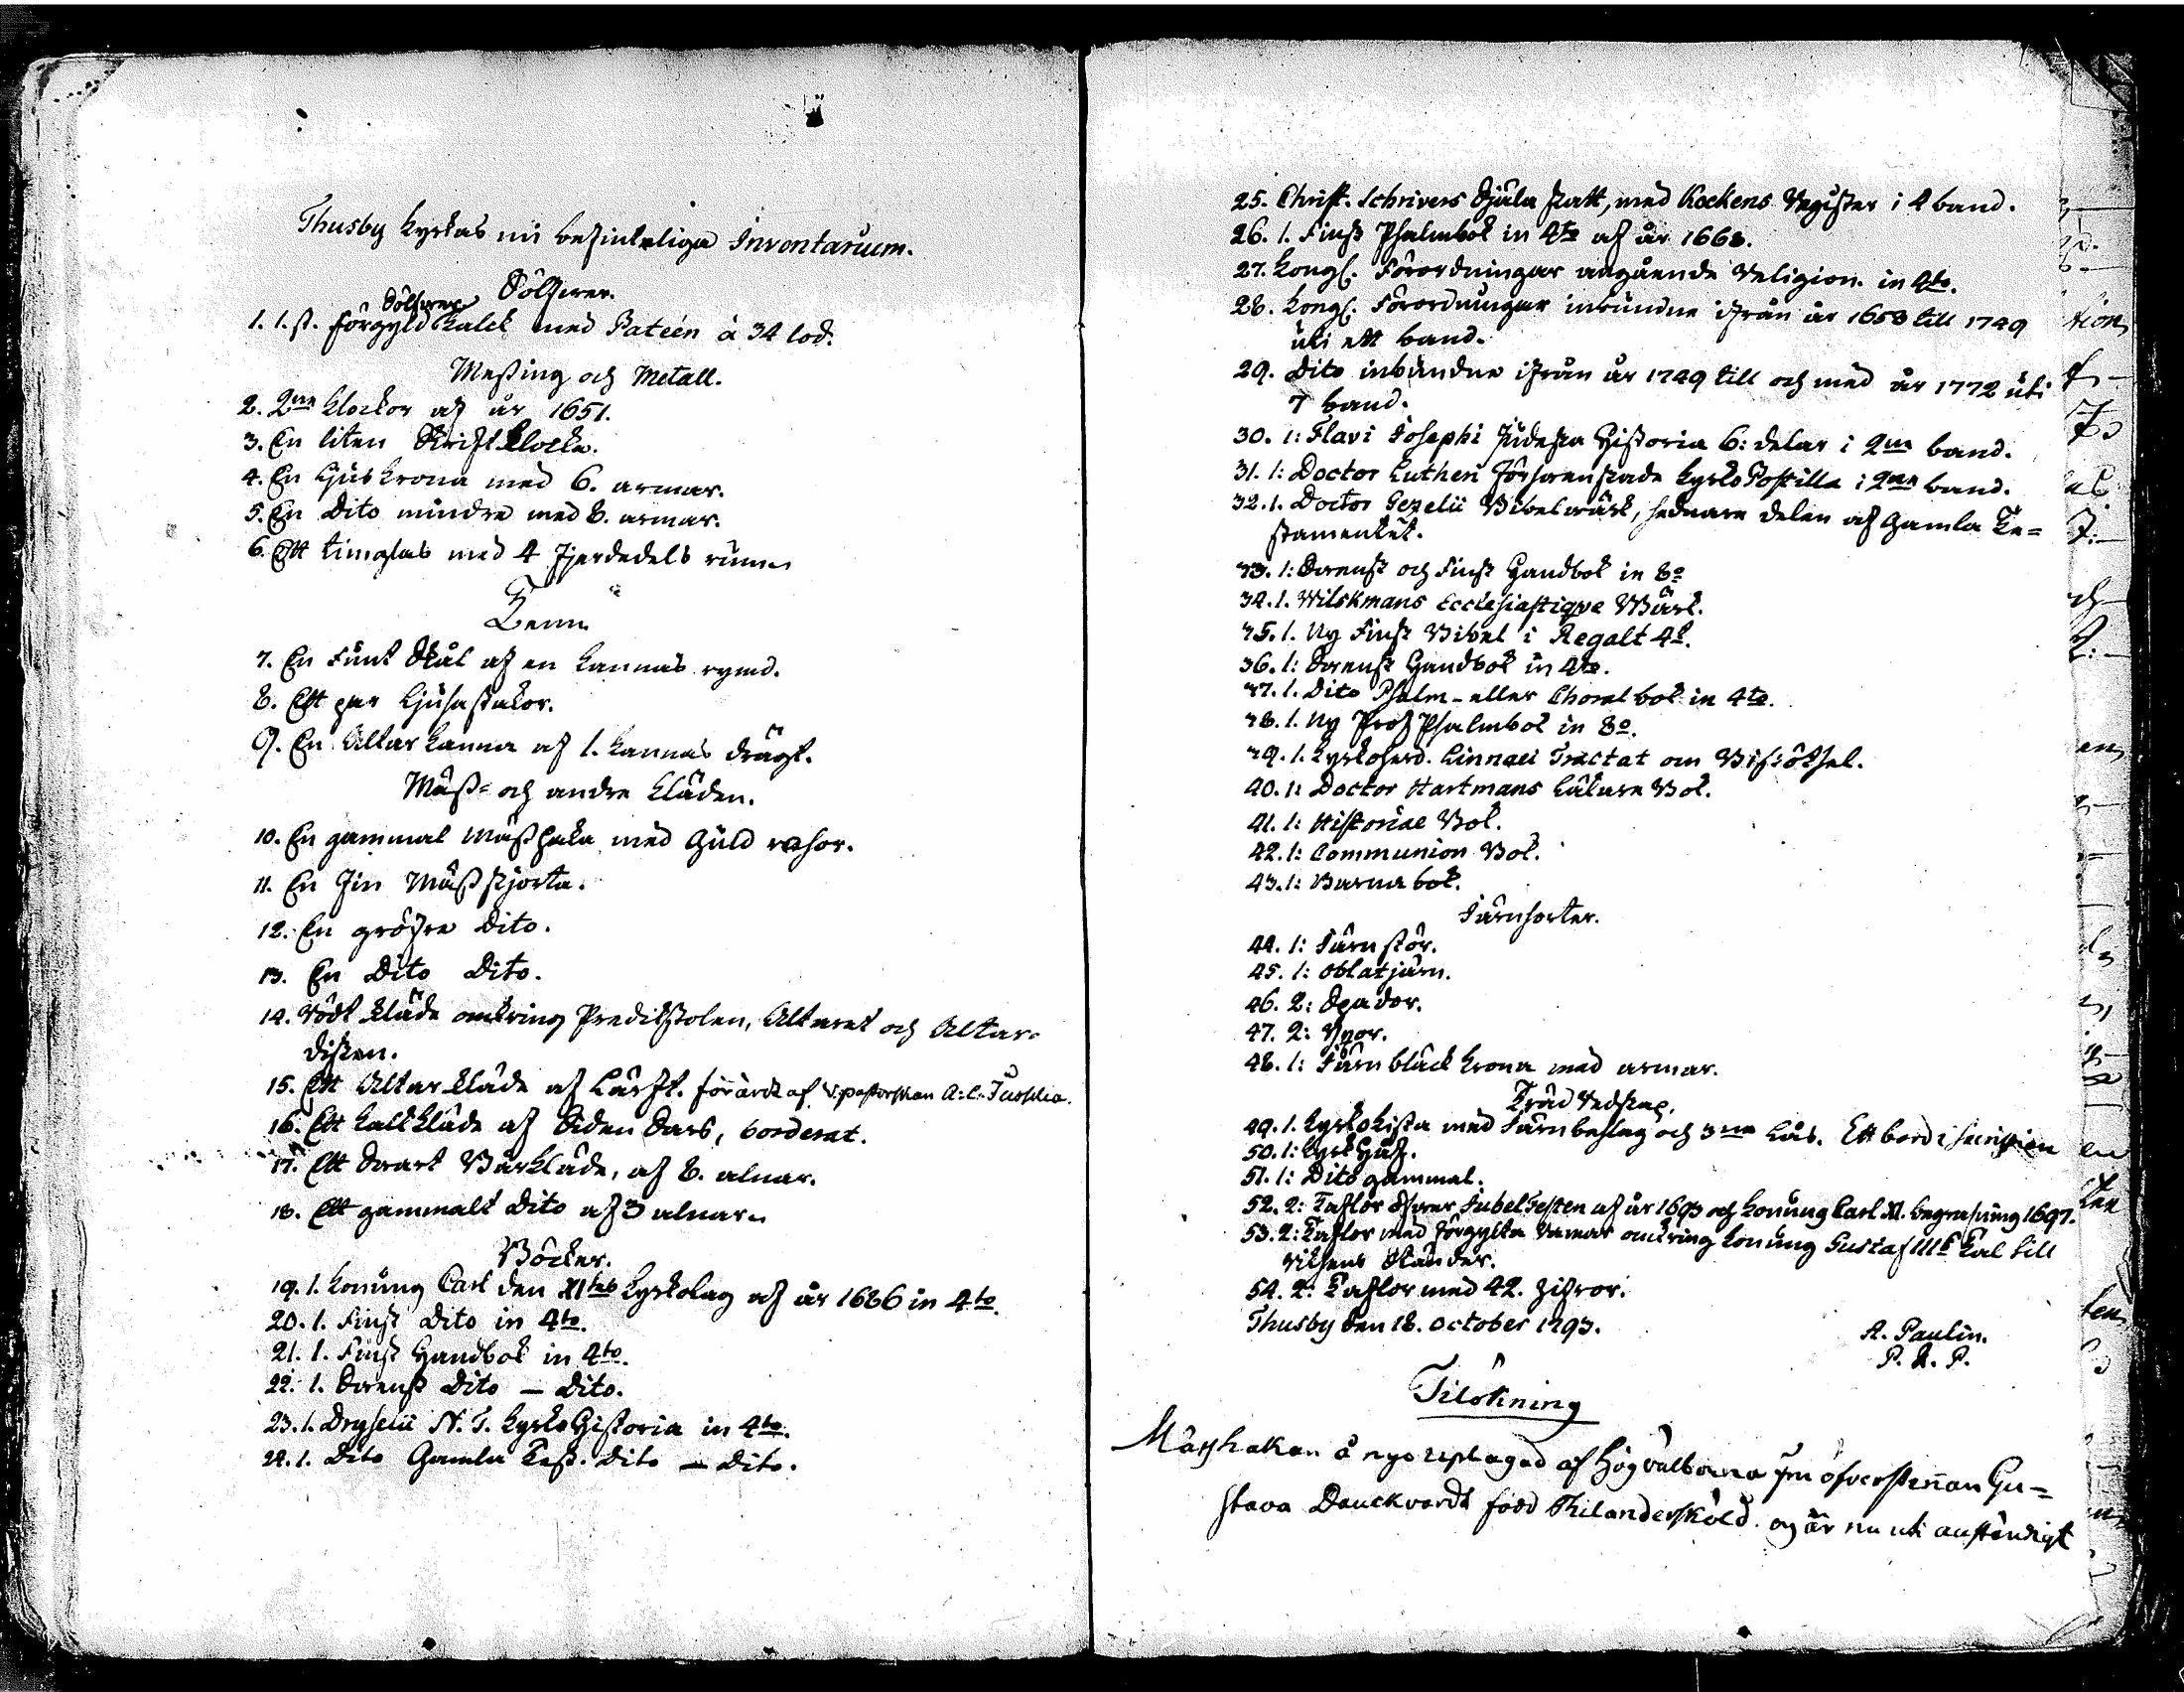 Thusby kyrkas nu befinteliga Inventarium.
Sölfwer.
Sölfwer
1. 1. st. förgyld kalck med Pateén à 34 lod.
Messing och Metall.
2. 2ne klockor af år 1651.
3. En liten Skrift klocka.
4. En Ljus krona med 6. armar.
5. En Dito mindre med 8. armar.
6. Ett timglas med 4 fjerdedels rum.
Tenn
7. En Funt Skål af en kannas rymd.
8. Ett par Ljusastakor.
9. En Altar kanna af 1. kannas drägt.
Mäss- och andra kläden.
10. En gammal Mässhaka med Guld rosor.
11. En fin Mässkjorta.
12. En gröfre Dito.
13. En Dito Dito.
14. Rödt kläde omkring Predikstolen, Altaret och Altar-
disken.
15. Ett Altar kläde af Lärft. förärdt af v. pastorskan A: C:
16. Ett kalk kläde af Siden Sars, borderat.
17. Ett Swart Bårkläde, af 8. alnar.
18. Ett gammalt Dito af 3 alnar.
Böcker.
19. 1. konung Carl den XItes kyrkolag af år 1686 in 4to.
20. 1. Finsk Dito in 4to.
21. 1. Finsk Handbok in 4to.
22. 1. Swensk Dito — Dito.
23. 1. Dryselii N. T. kyrko Historia in 4to.
24. 1. Dito Gamla Test. Dito — Dito.
25. Christ. Schrivers Själa skatt, med Kockens Register i 4 band.
26. 1. Finsk Psalmbok in 4to af år 1668.
27. Kongl. Förordningar angående Religion. in 4to.
28. Kongl. Förordningar inbundne ifrån år 1658 till 1749
uti ett band.
29. Dito inbundne ifrån år 1749 till och med år 1772 uti
7 band.
30. 1: Flavi Josephi Judeska Historia 6: delar i 2ne band.
31. 1: Doctor Lutheri Förswenskade kyrko Postilla i 2ne band.
32. 1. Doctor Gezelii Bibelwärk, sednare delen af Gamla Te-
stamentet.
33. 1: Swensk och Finsk Handbok in 8o
34. 1. Wilskmans Ecclesiastiqve Wärk.
35. 1. Ny Finsk Bibel i Regalt 4o.
36. 1: Swensk Handbok in 4to.
37. 1. Dito Psalm- eller Choral bok in 4to.
38. 1. Ny Prof Psalmbok in 8o.
39. 1. kyrkoherd. Linnaei Tractat om Biskötsel.
40. 1: Doctor Hartmans Läkare Bok.
41. 1: Historiae Bok.
42. 1: Communion Bok.
43. 1: Barna bok.
Järnsorter.
44. 1: Järn stör.
45. 1: Oblatjärn.
46. 2: Spador.
47. 2:
48. 1: Järn bläck krona med armar.
Träd Redskap.
49. 1. kyrko kista med Järnbeslag och 3ne Lås. Ett bord i sacristian
50. 1: kyrk Håf.
51. 1: Dito gammal.
52. 2: Taflor öfwer Jubel Festen af år 1693 och konung Carl XI. begrafning 1697.
53. 2: Taflor med förgylta Ramar omkring konung Gustaf IIIs Tal till
Riksens Ständer.
54. 2: Taflor med 42. Zifror.
Thusby den 18. October 1793.
A. Paulin.
P. L. P.
Tilökning
Mässhakan å nyo replagad af Högvälborna Fru öfverstinnan Gu-
stava Dauckvardt född Thilanderskôld och är nu uti anständigt